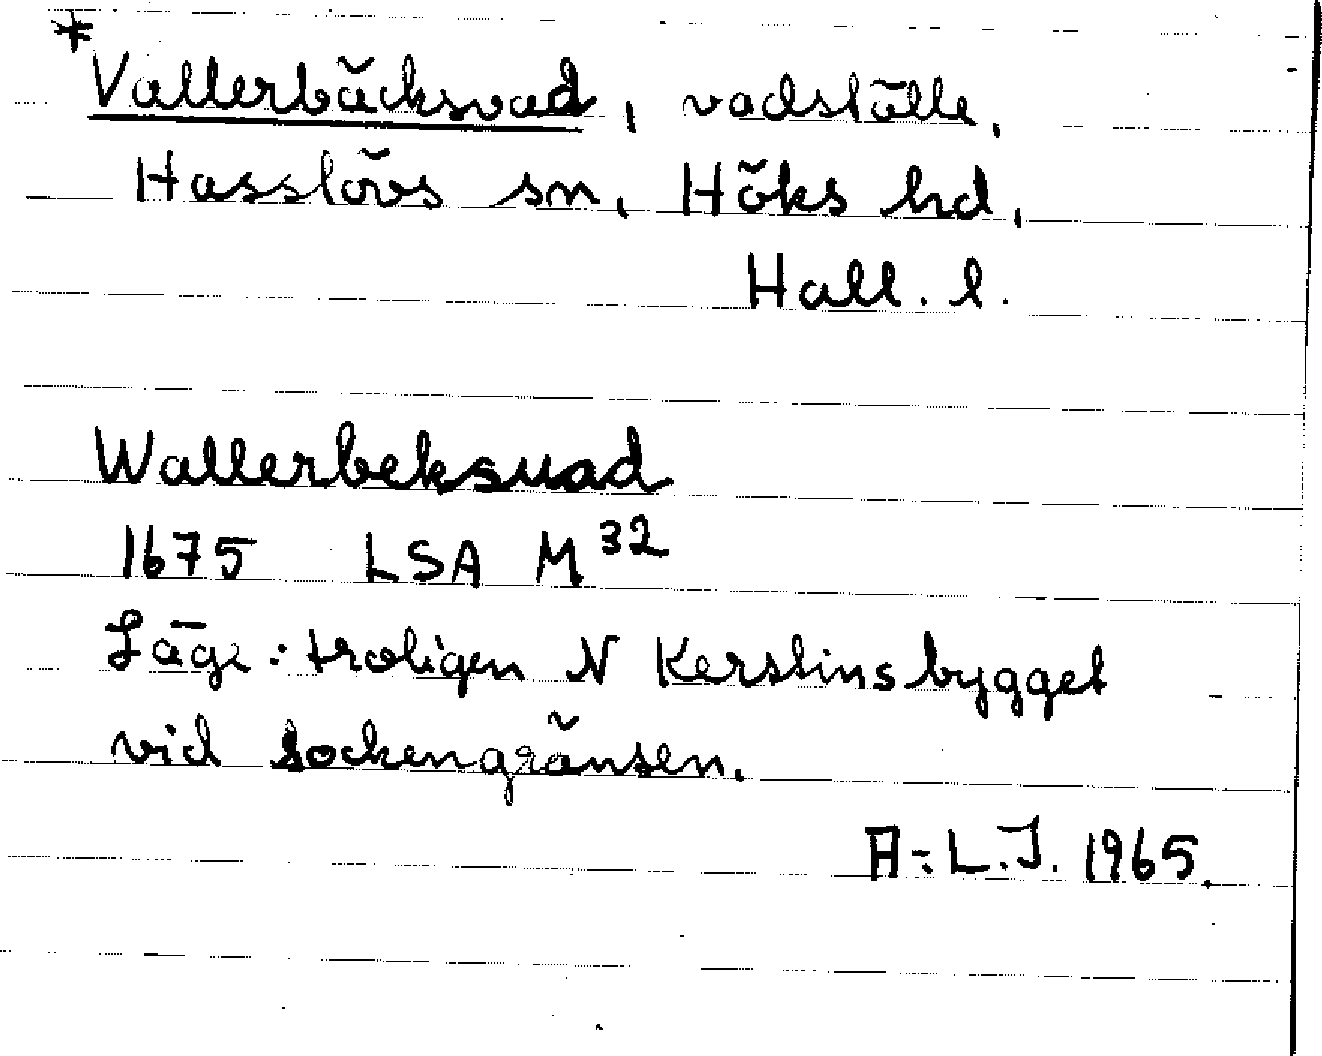 *Vallerbäcksvad, vadställe,
Hasslövs sn, Höks hd,
Hall. l.
Wallerbeksuad
1675 LSA M 32
Läge: troligen N Kerstinsbygget
vid sockengränsen.
A-L.J. 1965.